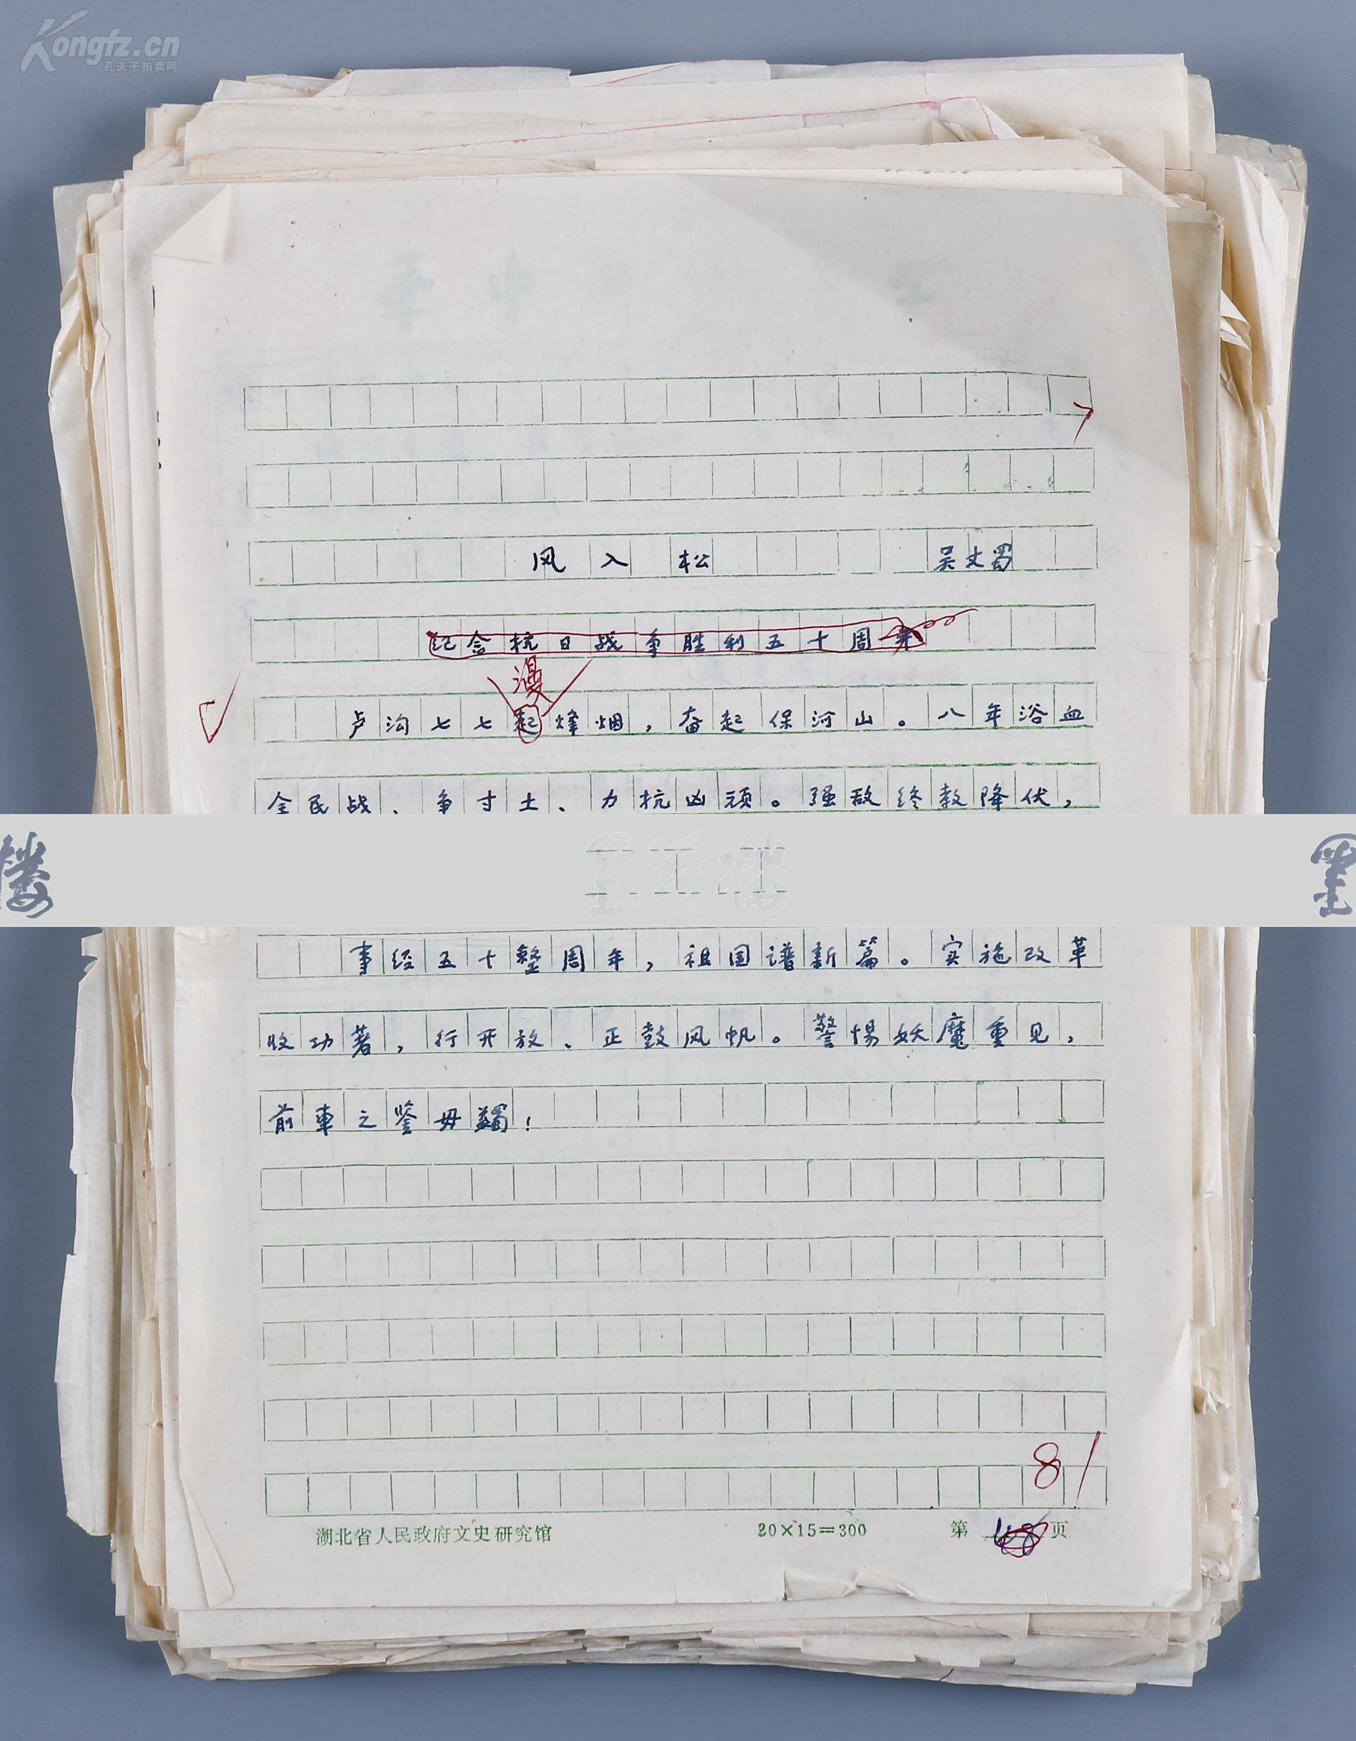 Kongfz.cn
孔夫子拍卖网
风入松 吴丈蜀
纪念抗日战争胜利五十周年
漫
卢沟七七起烽烟，奋起保河山。八年浴血
全民战、争寸土、力抗凶顽。强敌终教降伏，
墨笺楼
事经五十整周年，祖国谱新篇。实施改革
收功著，行开放、正鼓风帆。警惕妖魔重见，
前車之鉴毋蠲！
81
湖北省人民政府文史研究馆 20×15=300 第 页